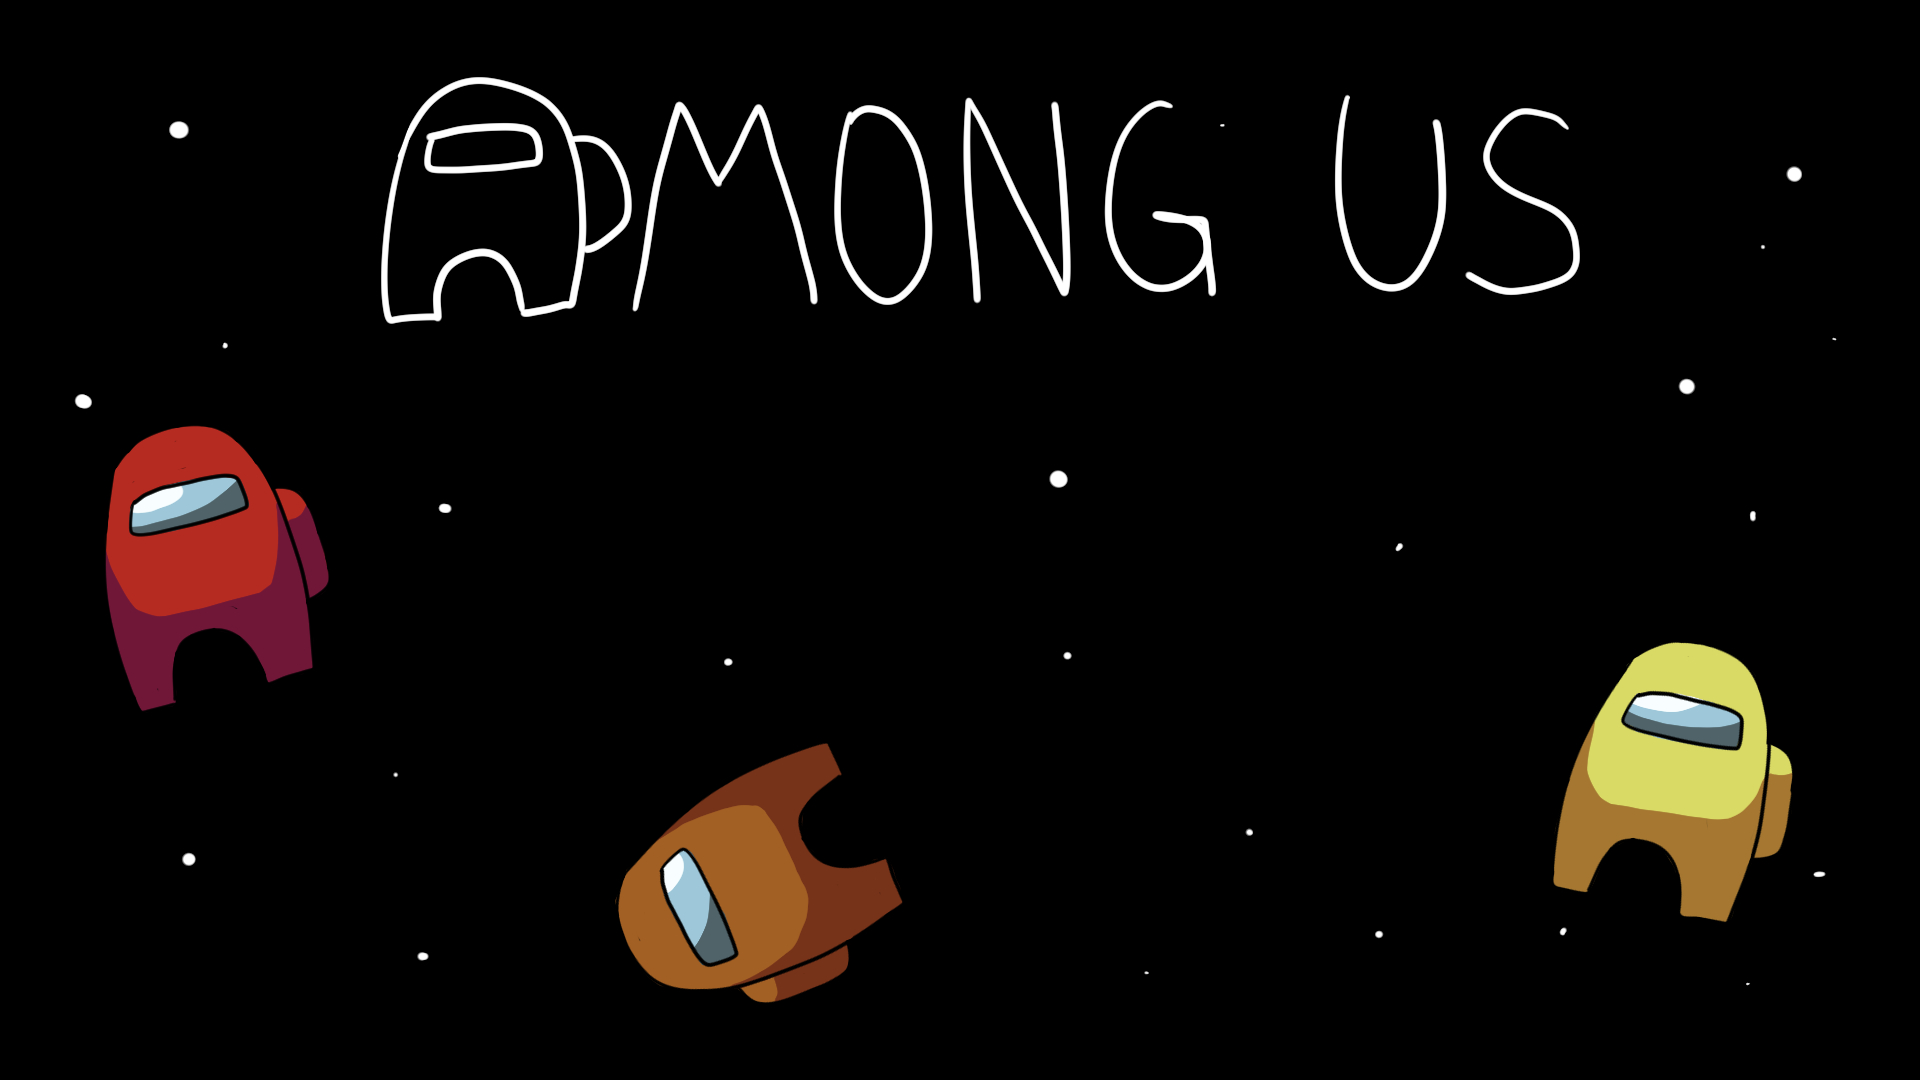 AMONG US